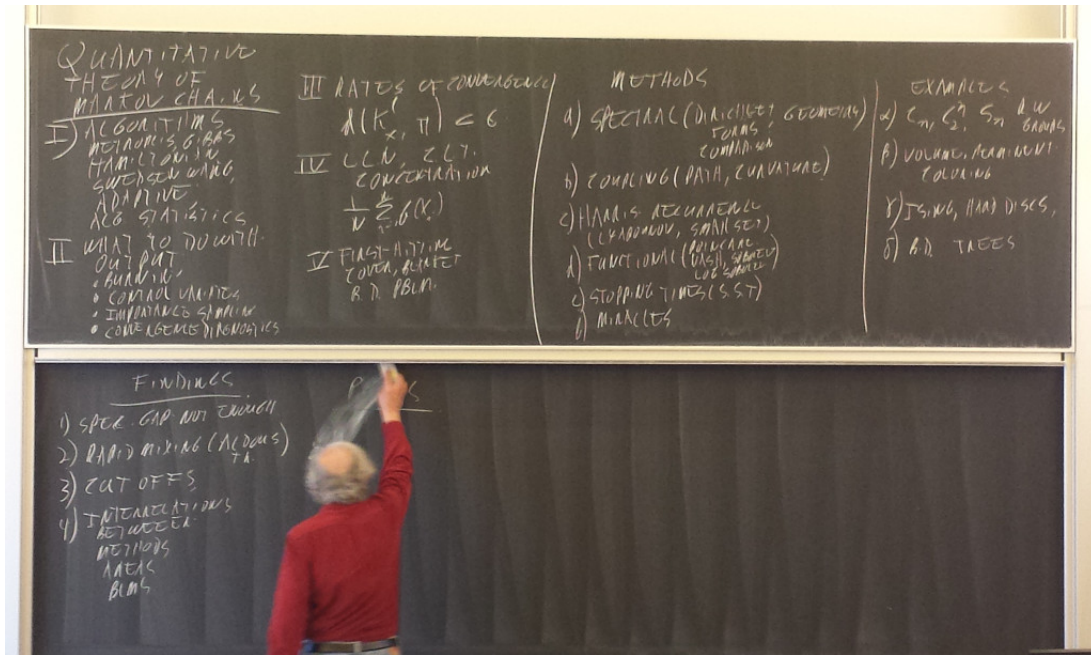 QUANTITATIVE
THEORY OF
MARKOV CHAINS
I) ALGORITHMS
METROPOLIS, GIBBS
HAMILTONIAN
SWEDSEN WANG,
ADAPTIVE
ALG STATISTICS
II WHAT TO DO WITH
OUTPUT
• BURNIN
• CONTROL VARIATES
• IMPORTANCE SAMPLING
• CONVERGENCE DIAGNOSTICS
III RATES OF CONVERGENCE
IV LLN, CLT.
CONCENTRATION
V FIRST-HITTING
COVER, BLANKET
B.D. PBLM.
METHODS
a) SPECTRAL (DIRICHLET, GEOMETRY)
FORMS,
COMPARISON
b) COUPLING (PATH, CURVATURE)
c) HARRIS RECURRENCE
(LYAPONOV, SMALL SET)
d) FUNCTIONAL (POINCARE
NASH, SOBOLEV
LOG SOBOLEV)
e) STOPPING TIMES (S.S.T)
f) MIRACLES
EXAMPLES
α) Cₙ, C₂ⁿ, Sₙ RW
GROUPS
β) VOLUME, PERMINENT
COLORING
γ) ISING, HARD DISCS,
δ) B.D. TREES
FINDINGS
1) SPEC. GAP NOT ENOUGH
2) RAPID MIXING (ALDOUS)
3) CUT OFFS
4) INTERRELATIONS
BETWEEN
METHODS
AREAS
BLMS